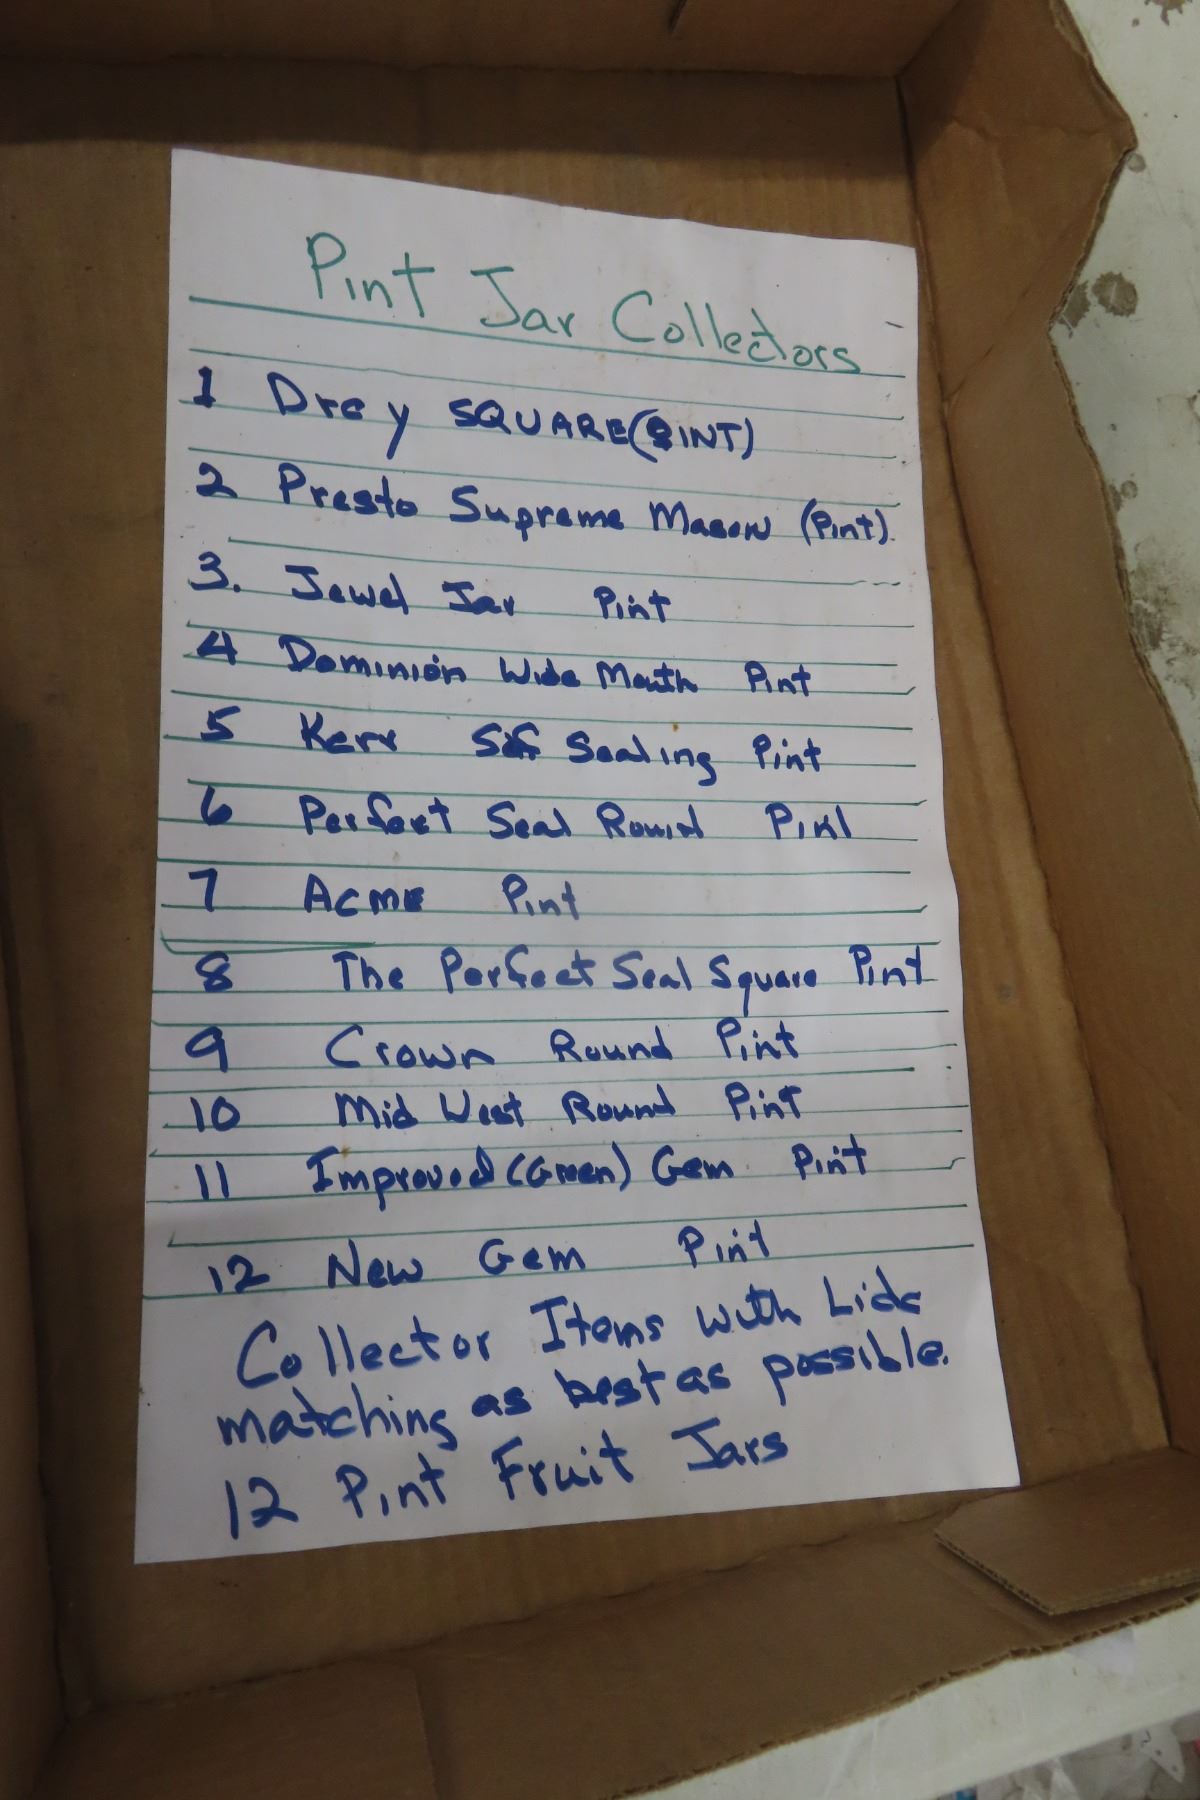 Pint Jar Collectors
1 Drey SQUARE (PINT)
2 Presto Supreme Mason (Pint).
3. Jewel Jar Pint
4 Dominion Wide Mouth Pint
5 Kerr Self Sealing Pint
6 Perfect Seal Round Pint
7 Acme Pint
8 The Perfect Seal Square Pint
9 Crown Round Pint
10 Mid West Round Pint
11 Improved (Green) Gem Pint
12 New Gem Pint
Collector Items with Lids
matching as best as possible.
12 Pint Fruit Jars